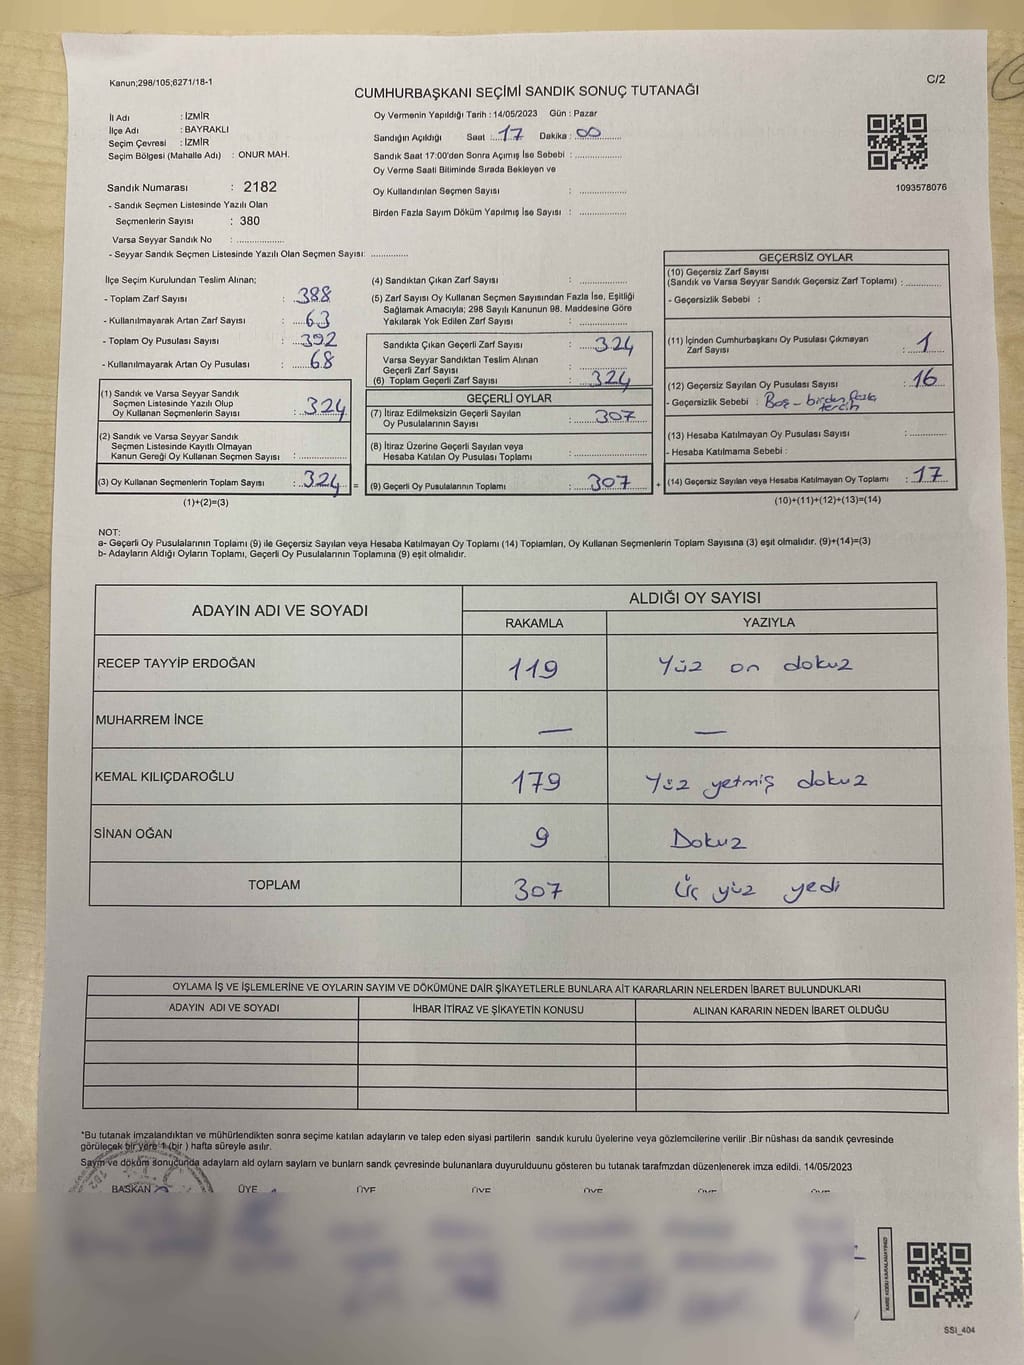 Kanun;298/105;6271/18-1
C/2
CUMHURBAŞKANI SEÇİMİ SANDIK SONUÇ TUTANAĞI
İl Adı : İZMİR
İlçe Adı : BAYRAKLI
Seçim Çevresi : İZMİR
Seçim Bölgesi (Mahalle Adı) : ONUR MAH.
Sandık Numarası : 2182
- Sandık Seçmen Listesinde Yazılı Olan
Seçmenlerin Sayısı : 380
Varsa Seyyar Sandık No : ..................
- Seyyar Sandık Seçmen Listesinde Yazılı Olan Seçmen Sayısı: ..............
Oy Vermenin Yapıldığı Tarih : 14/05/2023 Gün : Pazar
Sandığın Açıldığı Saat : 17 Dakika : 00
Sandık Saat 17:00'den Sonra Açımış İse Sebebi : ..................
Oy Verme Saati Bitiminde Sırada Bekleyen ve
Oy Kullandırılan Seçmen Sayısı : ..................
Birden Fazla Sayım Döküm Yapılmış İse Sayısı : ..................
1093578076
İlçe Seçim Kurulundan Teslim Alınan;
- Toplam Zarf Sayısı : 388
- Kullanılmayarak Artan Zarf Sayısı : 63
- Toplam Oy Pusulası Sayısı : 392
- Kullanılmayarak Artan Oy Pusulası : 68
(1) Sandık ve Varsa Seyyar Sandık
Seçmen Listesinde Yazılı Olup
Oy Kullanan Seçmenlerin Sayısı : 324
(2) Sandık ve Varsa Seyyar Sandık
Seçmen Listesinde Kayıtlı Olmayan
Kanun Gereği Oy Kullanan Seçmen Sayısı : ..................
(3) Oy Kullanan Seçmenlerin Toplam Sayısı : 324 =
(1)+(2)=(3)
(4) Sandıktan Çıkan Zarf Sayısı : ..................
(5) Zarf Sayısı Oy Kullanan Seçmen Sayısından Fazla İse, Eşitliği
Sağlamak Amacıyla; 298 Sayılı Kanunun 98. Maddesine Göre
Yakılarak Yok Edilen Zarf Sayısı : ..................
Sandıkta Çıkan Geçerli Zarf Sayısı : 324
Varsa Seyyar Sandıktan Teslim Alınan
Geçerli Zarf Sayısı : ..................
(6) Toplam Geçerli Zarf Sayısı : 324
GEÇERLİ OYLAR
(7) İtiraz Edilmeksizin Geçerli Sayılan
Oy Pusulalarının Sayısı : 307
(8) İtiraz Üzerine Geçerli Sayılan veya
Hesaba Katılan Oy Pusulası Toplamı : ..................
(9) Geçerli Oy Pusulalarının Toplamı : 307 +
GEÇERSİZ OYLAR
(10) Geçersiz Zarf Sayısı
(Sandık ve Varsa Seyyar Sandık Geçersiz Zarf Toplamı) : .............
- Geçersizlik Sebebi :
(11) İçinden Cumhurbaşkanı Oy Pusulası Çıkmayan
Zarf Sayısı : 1
(12) Geçersiz Sayılan Oy Pusulası Sayısı : 16
- Geçersizlik Sebebi : Boş - birden fazla
tercih
(13) Hesaba Katılmayan Oy Pusulası Sayısı : .............
- Hesaba Katılmama Sebebi :
(14) Geçersiz Sayılan veya Hesaba Katılmayan Oy Toplamı : 17
(10)+(11)+(12)+(13)=(14)
NOT:
a- Geçerli Oy Pusulalarının Toplamı (9) ile Geçersiz Sayılan veya Hesaba Katılmayan Oy Toplamı (14) Toplamları, Oy Kullanan Seçmenlerin Toplam Sayısına (3) eşit olmalıdır. (9)+(14)=(3)
b- Adayların Aldığı Oyların Toplamı, Geçerli Oy Pusulalarının Toplamına (9) eşit olmalıdır.
ADAYIN ADI VE SOYADI
ALDIĞI OY SAYISI
RAKAMLA YAZIYLA
RECEP TAYYİP ERDOĞAN 119 Yüz on dokuz
MUHARREM İNCE — —
KEMAL KILIÇDAROĞLU 179 Yüz yetmiş dokuz
SİNAN OĞAN 9 Dokuz
TOPLAM 307 Üç yüz yedi
OYLAMA İŞ VE İŞLEMLERİNE VE OYLARIN SAYIM VE DÖKÜMÜNE DAİR ŞİKAYETLERLE BUNLARA AİT KARARLARIN NELERDEN İBARET BULUNDUKLARI
ADAYIN ADI VE SOYADI İHBAR İTİRAZ VE ŞİKAYETİN KONUSU ALINAN KARARIN NEDEN İBARET OLDUĞU
*Bu tutanak imzalandıktan ve mühürlendikten sonra seçime katılan adayların ve talep eden siyasi partilerin sandık kurulu üyelerine veya gözlemcilerine verilir .Bir nüshası da sandık çevresinde
görülecek bir yere 1 (bir ) hafta süreyle asılır.
Sayım ve döküm sonuçunda adayların ald oyların sayların ve bunların sandk çevresinde bulunanlara duyurulduunu gösteren bu tutanak tarafmzdan düzenlenerek imza edildi. 14/05/2023
BAŞKAN ÜYE ÜYE ÜYE ÜYE ÜYE ÜYE
KARE KODU KARALAMAYINIZ!
SSI_404